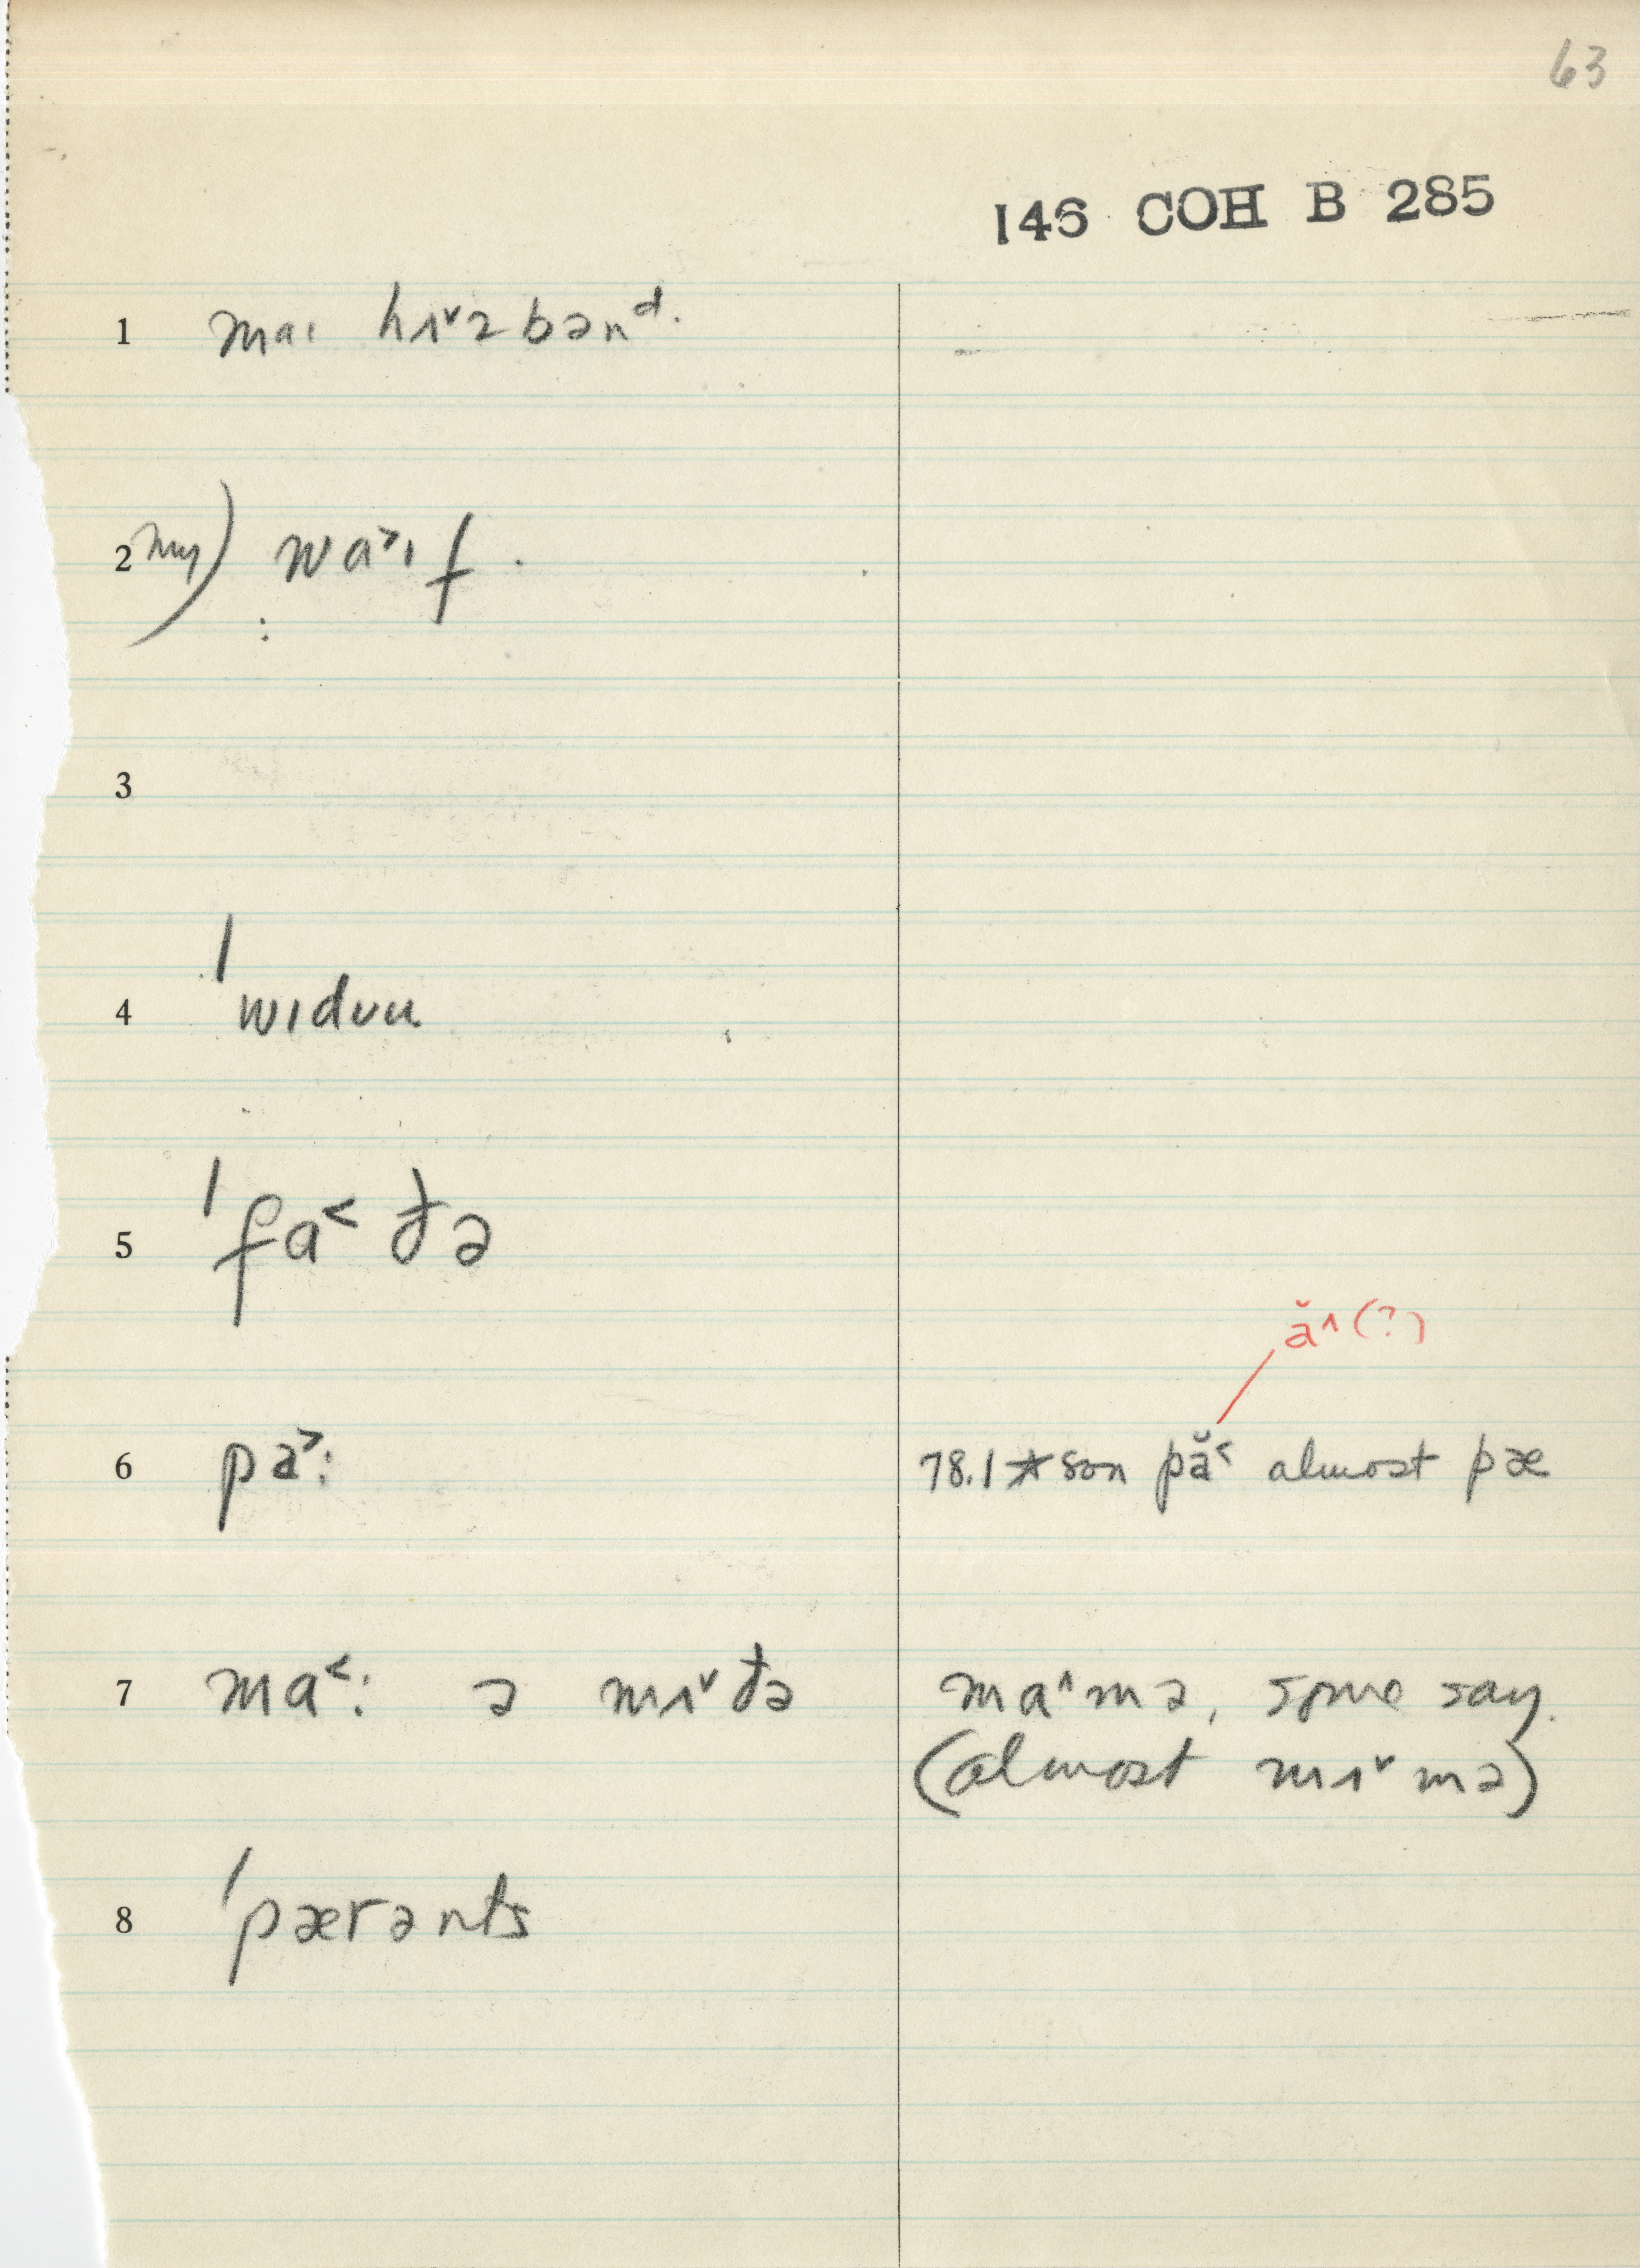 63
146 COH B 285
1 maɪ hɪ˅zbənᵈ.
2 my) wa˃ɪf.
:
3
4 ˈwɪdʊu
5 ˈfa˂ðə
ă˄(?)
6 pa˃: 78.1★son pă˂ almost pæ
7 ma˂: ə mɪ˅ðə ma˄mə, some say.
(almost mɪ˅mə)
8 ˈpærənts